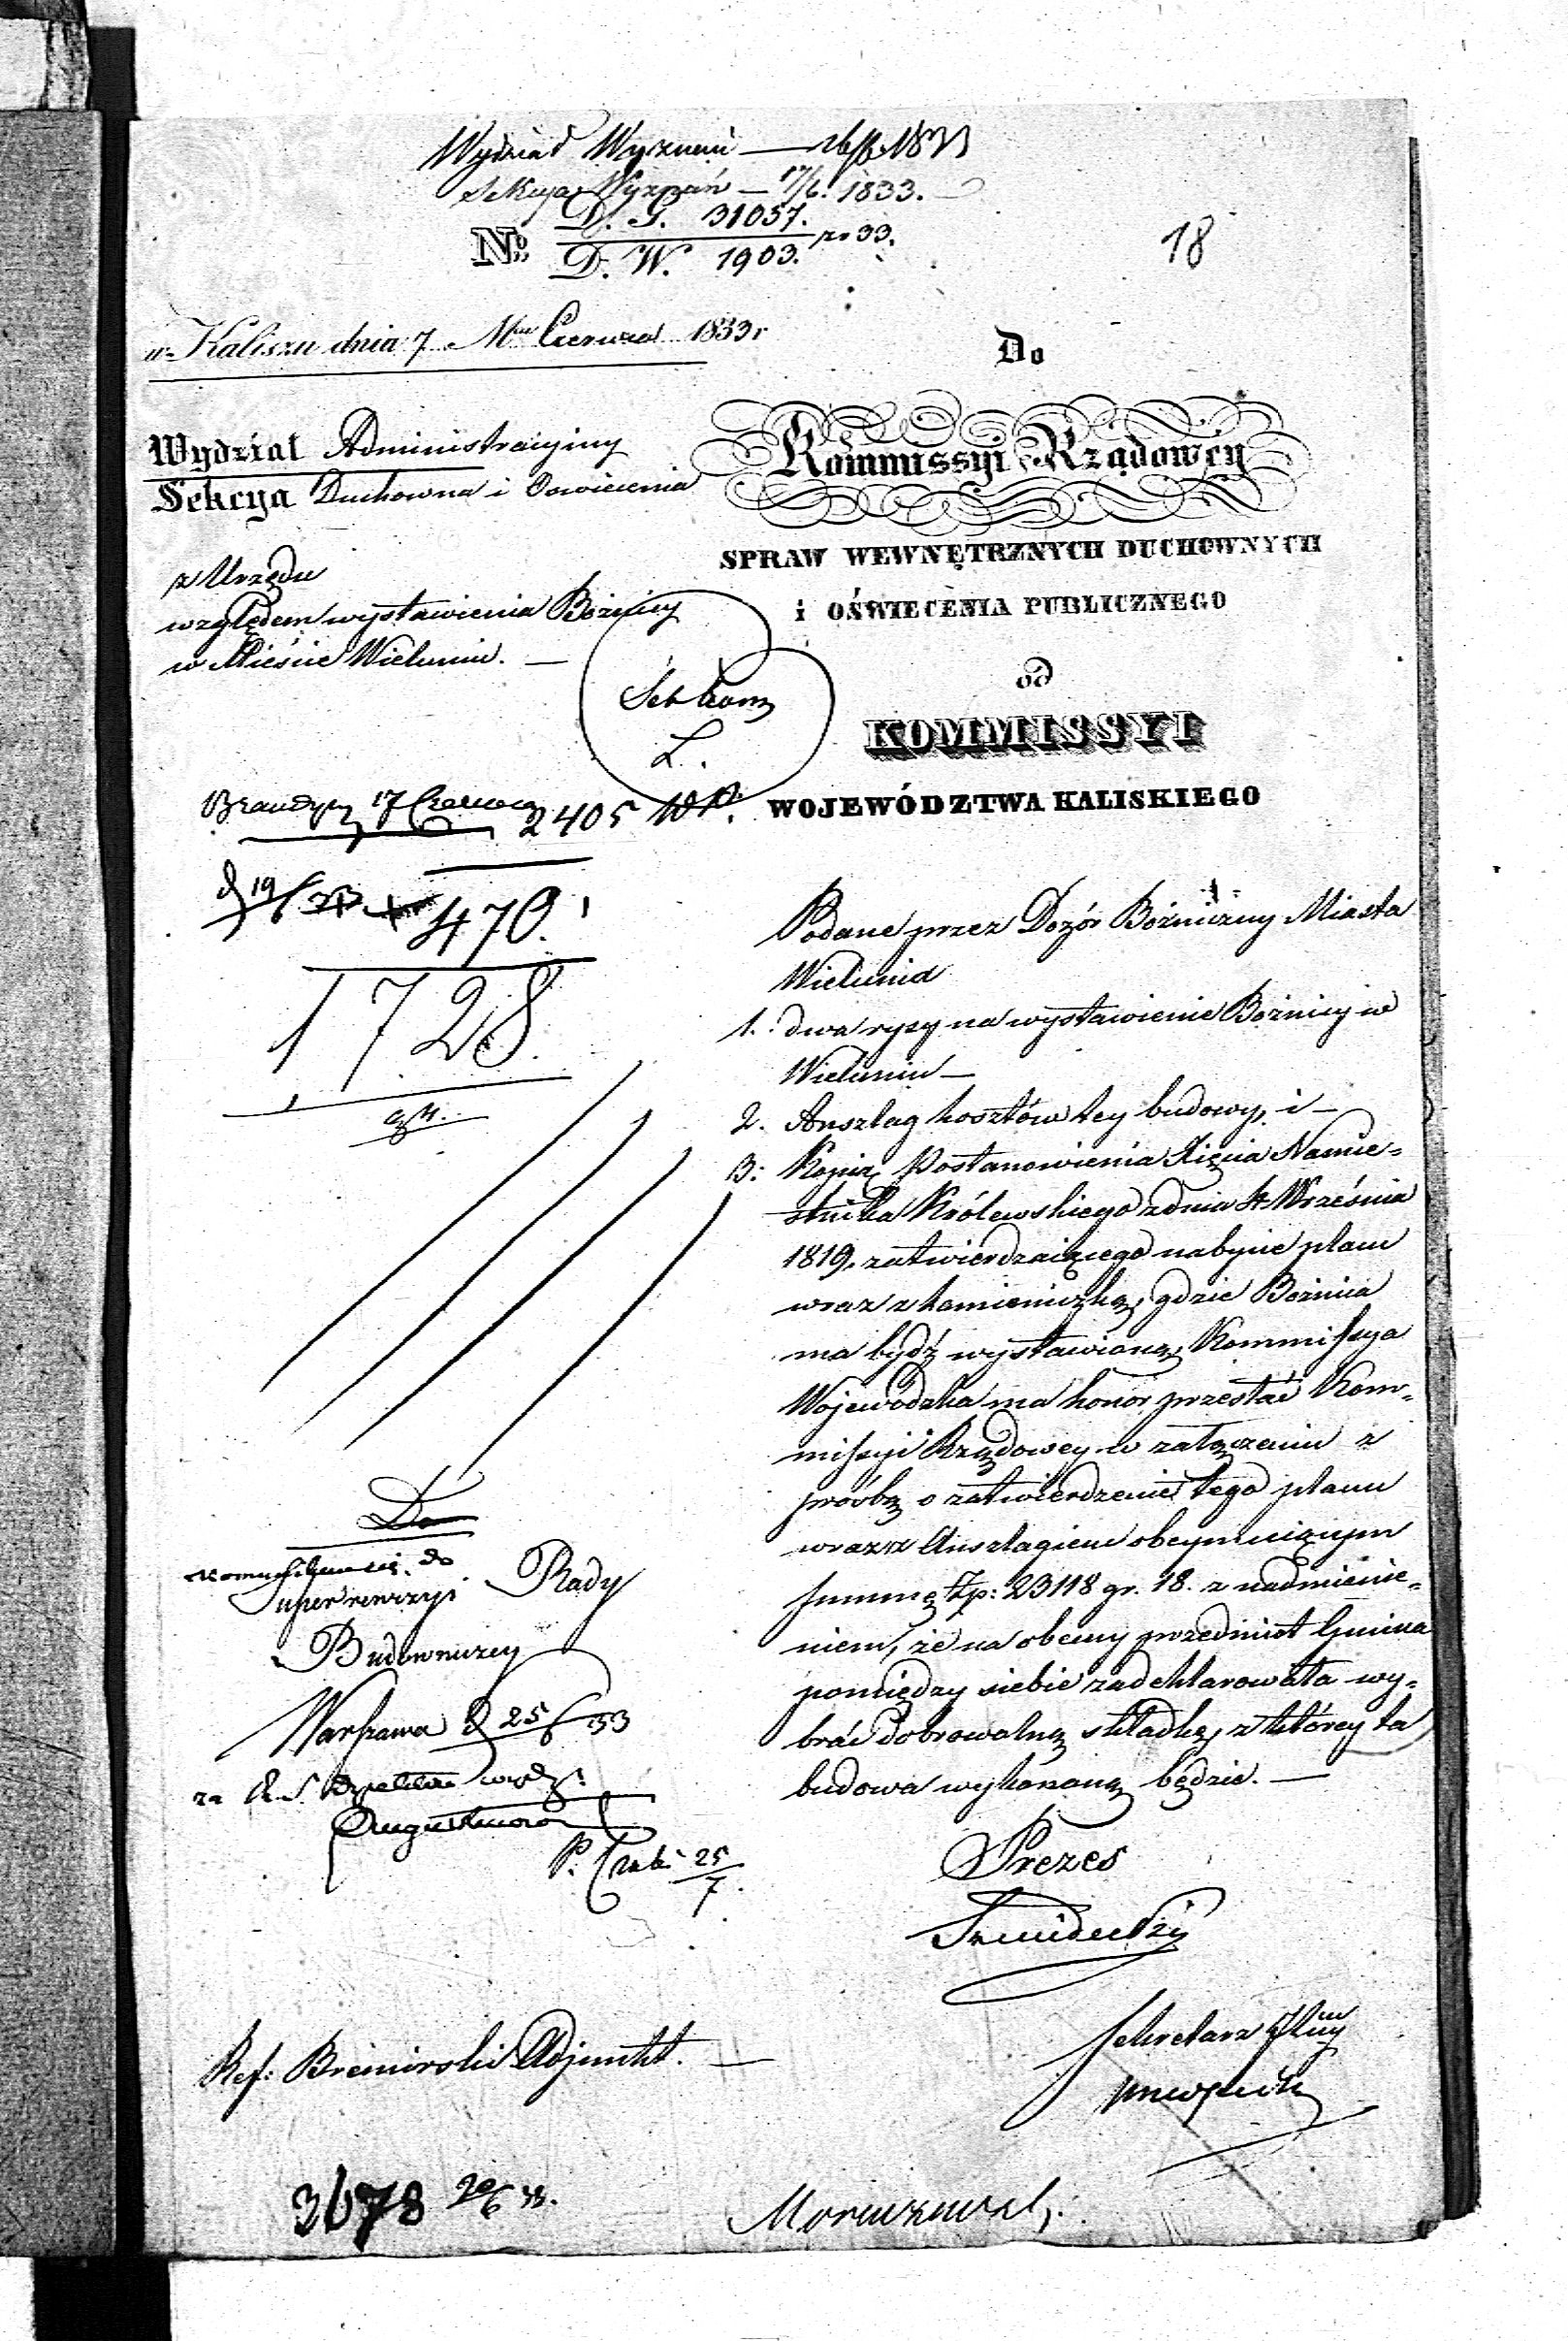 Wydział Wyznań
Sekcya Wyznań — 17/6. 1833.
No. D. G. 31057.
D. W. 1903. 33.
18
w Kaliszu dnia 7 Mca Czerwca 1833r
Do
Wydział Administracyiny
Sekcya Duchowna i Oswiecenia
Kommissyi Rządowéy
SPRAW WEWNĘTRZNYCH DUCHOWNYCH
i OŚWIECENIA PUBLICZNEGO
z Urzędu
względem wystawienia Bożnicy
w Mieście Wieluniu. —
od
KOMMISSYI
WOJEWÓDZTWA KALISKIEGO
17 Czerwca
2405
470.
1728
Podane przez Dozór Bożniczny Miasta
Wielunia
1. dwa rysy na wystawienie Bożnicy w
Wieluniu —
2. Anszlag kosztów tey budowy, i —
3: Kopią Postanowienia Xięcia Namie-
stnika Królewskiego z dnia 4 Września
1819. zatwierdzaiącego nabycie placu
wraz z kamieniczką, gdzie Bożnica
ma bydź wystawioną, Kommissya
Wojewódzka ma honor przesłać Kom-
missyi Rządowey w załączeniu z
prośbą o zatwierdzenie tego planu
wraz z Anszlagiem obeymuiącym
summę Zp: 23118 gr. 18. z nadmienie-
niem, że na obecny przedmiot Gmina
pomiędzy siebie zadeklarowała wy-
brać dobrowolną składkę, z którey ta
budowa wykonaną będzie. —
Do
do
Superrewizyi Rady
Budowniczey
Warszawa d 25/6 33
25/7.
Prezes
Sekretarz Jlny
Ref: Adjunkt. —
3678 20/6 33.